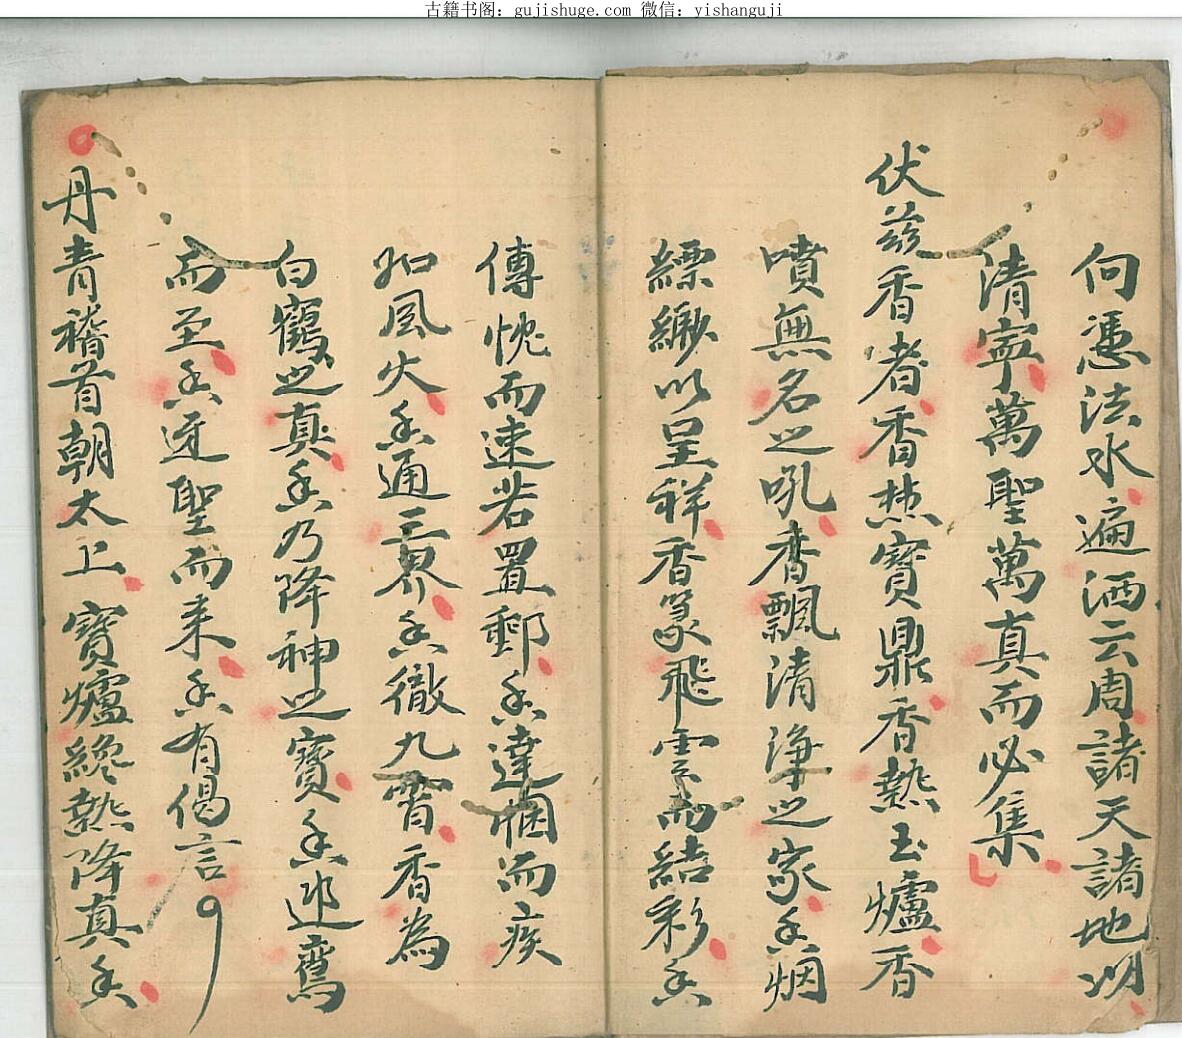 古籍书阁：gujishuge.com 微信：yishanguji
何憑法水遍洒云周諸天諸地以
清寧萬聖萬真而必集
伏兹香者香焚寶鼎香熱玉爐香
噴無名之吼香飄清淨之家香烟
縹緲以呈祥香篆飛雲而結彩香
傳忱而速若置郵香達悃而疾
如風火香通三界香徹九霄香為
白鶴之真香乃降神之寶香迎鸞
而至香迓聖而来香有偈言
丹青稽首朝太上寶爐纔熱降真香